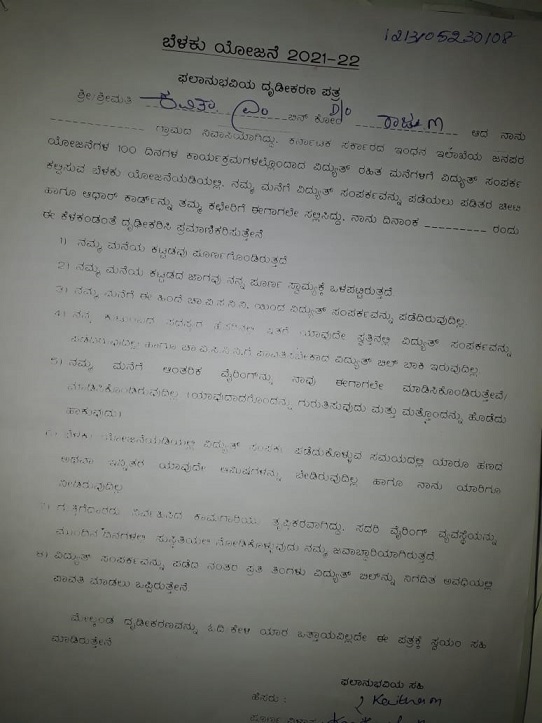 1213105230108
ಬೆಳಕು ಯೋಜನೆ 2021-22
ಫಲಾನುಭವಿಯ ದೃಡೀಕರಣ ಪತ್ರ
ಶ್ರೀ/ಶ್ರೀಮತಿ ಕವಿತಾ ಎಂ ಬಿನ್ ಕೋಂ D/o ರಾಜು M ಆದ ನಾನು
ಗ್ರಾಮದ ನಿವಾಸಿಯಾಗಿದ್ದು, ಕರ್ನಾಟಕ ಸರ್ಕಾರದ ಇಂಧನ ಇಲಾಖೆಯ ಜನಪರ
ಯೋಜನೆಗಳ 100 ದಿನಗಳ ಕಾರ್ಯಕ್ರಮಗಳಲ್ಲೊಂದಾದ ವಿದ್ಯುತ್ ರಹಿತ ಮನೆಗಳಿಗೆ ವಿದ್ಯುತ್ ಸಂಪರ್ಕ
ಕಲ್ಪಿಸುವ ಬೆಳಕು ಯೋಜನೆಯಡಿಯಲ್ಲಿ, ನಮ್ಮ ಮನೆಗೆ ವಿದ್ಯುತ್ ಸಂಪರ್ಕವನ್ನು ಪಡೆಯಲು ಪಡಿತರ ಚೀಟಿ
ಹಾಗೂ ಆಧಾರ್ ಕಾರ್ಡ್‌ನ್ನು ತಮ್ಮ ಕಛೇರಿಗೆ ಈಗಾಗಲೇ ಸಲ್ಲಿಸಿದ್ದು, ನಾನು ದಿನಾಂಕ ರಂದು
ಈ ಕೆಳಕಂಡಂತೆ ದೃಢೀಕರಿಸಿ ಪ್ರಮಾಣಿಕರಿಸುತ್ತೇನೆ
1) ನಮ್ಮ ಮನೆಯ ಕಟ್ಟಡವು ಪೂರ್ಣಗೊಂಡಿರುತ್ತದೆ
2) ನಮ್ಮ ಮನೆಯ ಕಟ್ಟಡದ ಜಾಗವು ನನ್ನ ಪೂರ್ಣ ಸ್ವಾಮ್ಯಕ್ಕೆ ಒಳಪಟ್ಟಿರುತ್ತದೆ
3) ನಮ್ಮ ಮನೆಗೆ ಈ ಹಿಂದೆ ಚಾ.ವಿ.ಸ.ನಿ.ನಿ. ಯಿಂದ ವಿದ್ಯುತ್ ಸಂಪರ್ಕವನ್ನು ಪಡೆದಿರುವುದಿಲ್ಲ.
4) ನನ್ನ ಕುಟುಂಬದ ಸದಸ್ಯರ ಹೆಸರಿನಲ್ಲಿ ಇತರೆ ಯಾವುದೇ ಸ್ವತ್ತಿನಲ್ಲಿ ವಿದ್ಯುತ್ ಸಂಪರ್ಕವನ್ನು
ಪಡೆದಿರುವುದಿಲ್ಲ ಹಾಗೂ ಚಾ.ವಿ.ಸ.ನಿ.ನಿ.ಗೆ ಪಾವತಿಸಬೇಕಾದ ವಿದ್ಯುತ್ ಬಿಲ್ ಬಾಕಿ ಇರುವುದಿಲ್ಲ
5) ನಮ್ಮ ಮನೆಗೆ ಆಂತರಿಕ ವೈರಿಂಗ್‌ನ್ನು ನಾವು ಈಗಾಗಲೇ ಮಾಡಿಸಿಕೊಂಡಿರುತ್ತೇವೆ/
ಮಾಡಿಸಿಕೊಂಡಿರುವುದಿಲ್ಲ (ಯಾವುದಾದರೊಂದನ್ನು ಗುರುತಿಸುವುದು ಮತ್ತು ಮತ್ತೊಂದನ್ನು ಹೊಡೆದು
ಹಾಕುವುದು)
6) ಬೆಳಕು ಯೋಜನೆಯಡಿಯಲ್ಲಿ ವಿದ್ಯುತ್ ಸಂಪರ್ಕ ಪಡೆದುಕೊಳ್ಳುವ ಸಮಯದಲ್ಲಿ ಯಾರೂ ಹಣದ
ಅಥವಾ ಇನ್ನಿತರ ಯಾವುದೇ ಆಮಿಷಗಳನ್ನು ಬೇಡಿರುವುದಿಲ್ಲ ಹಾಗೂ ನಾನು ಯಾರಿಗೂ
ನೀಡಿರುವುದಿಲ್ಲ
7) ಗುತ್ತಿಗೆದಾರರು ನಿರ್ವಹಿಸಿದ ಕಾಮಗಾರಿಯು ತೃಪ್ತಿಕರವಾಗಿದ್ದು, ಸದರಿ ವೈರಿಂಗ್ ವ್ಯವಸ್ಥೆಯನ್ನು
ಮುಂದಿನ ದಿನಗಳಲ್ಲಿ ಸುಸ್ಥಿತಿಯಲ್ಲಿ ನೋಡಿಕೊಳ್ಳುವುದು ನಮ್ಮ ಜವಾಬ್ದಾರಿಯಾಗಿರುತ್ತದೆ
8) ವಿದ್ಯುತ್ ಸಂಪರ್ಕವನ್ನು ಪಡೆದ ನಂತರ ಪ್ರತಿ ತಿಂಗಳು ವಿದ್ಯುತ್ ಬಿಲ್‌ನ್ನು ನಿಗದಿತ ಅವಧಿಯಲ್ಲಿ
ಪಾವತಿ ಮಾಡಲು ಒಪ್ಪಿರುತ್ತೇನೆ
ಮೇಲ್ಕಂಡ ದೃಢೀಕರಣವನ್ನು ಓದಿ/ಕೇಳಿ ಯಾರ ಒತ್ತಾಯವಿಲ್ಲದೇ ಈ ಪತ್ರಕ್ಕೆ ಸ್ವಯಂ ಸಹಿ
ಮಾಡಿರುತ್ತೇನೆ
ಫಲಾನುಭವಿಯ ಸಹಿ
ಹೆಸರು :